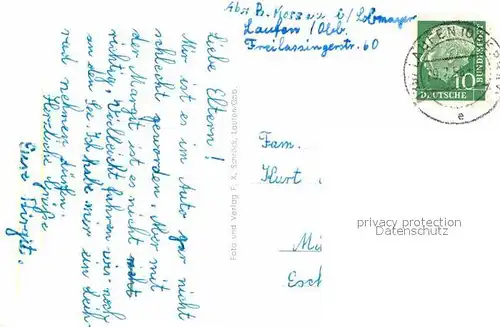 Abs. Br.
Laufen / Obb.
Freilassingerstr. 60
LAUFEN (OB
10
DEUTSCHE BUNDESPOST
e
Liebe Eltern!
Mir ist es im Auto gar nicht
schlecht geworden. Aber mit
der Margit ist es nicht
richtig. Vielleicht fahren wir noch
an den See. Ich habe mir ein Leih-
rad nehmen dürfen.
Herzliche Grüße
Eure Birgit.
Foto und Verlag F. X. Laufen/Obb.
Fam.
Kurt
Mü
Esch
privacy protection
Datenschutz